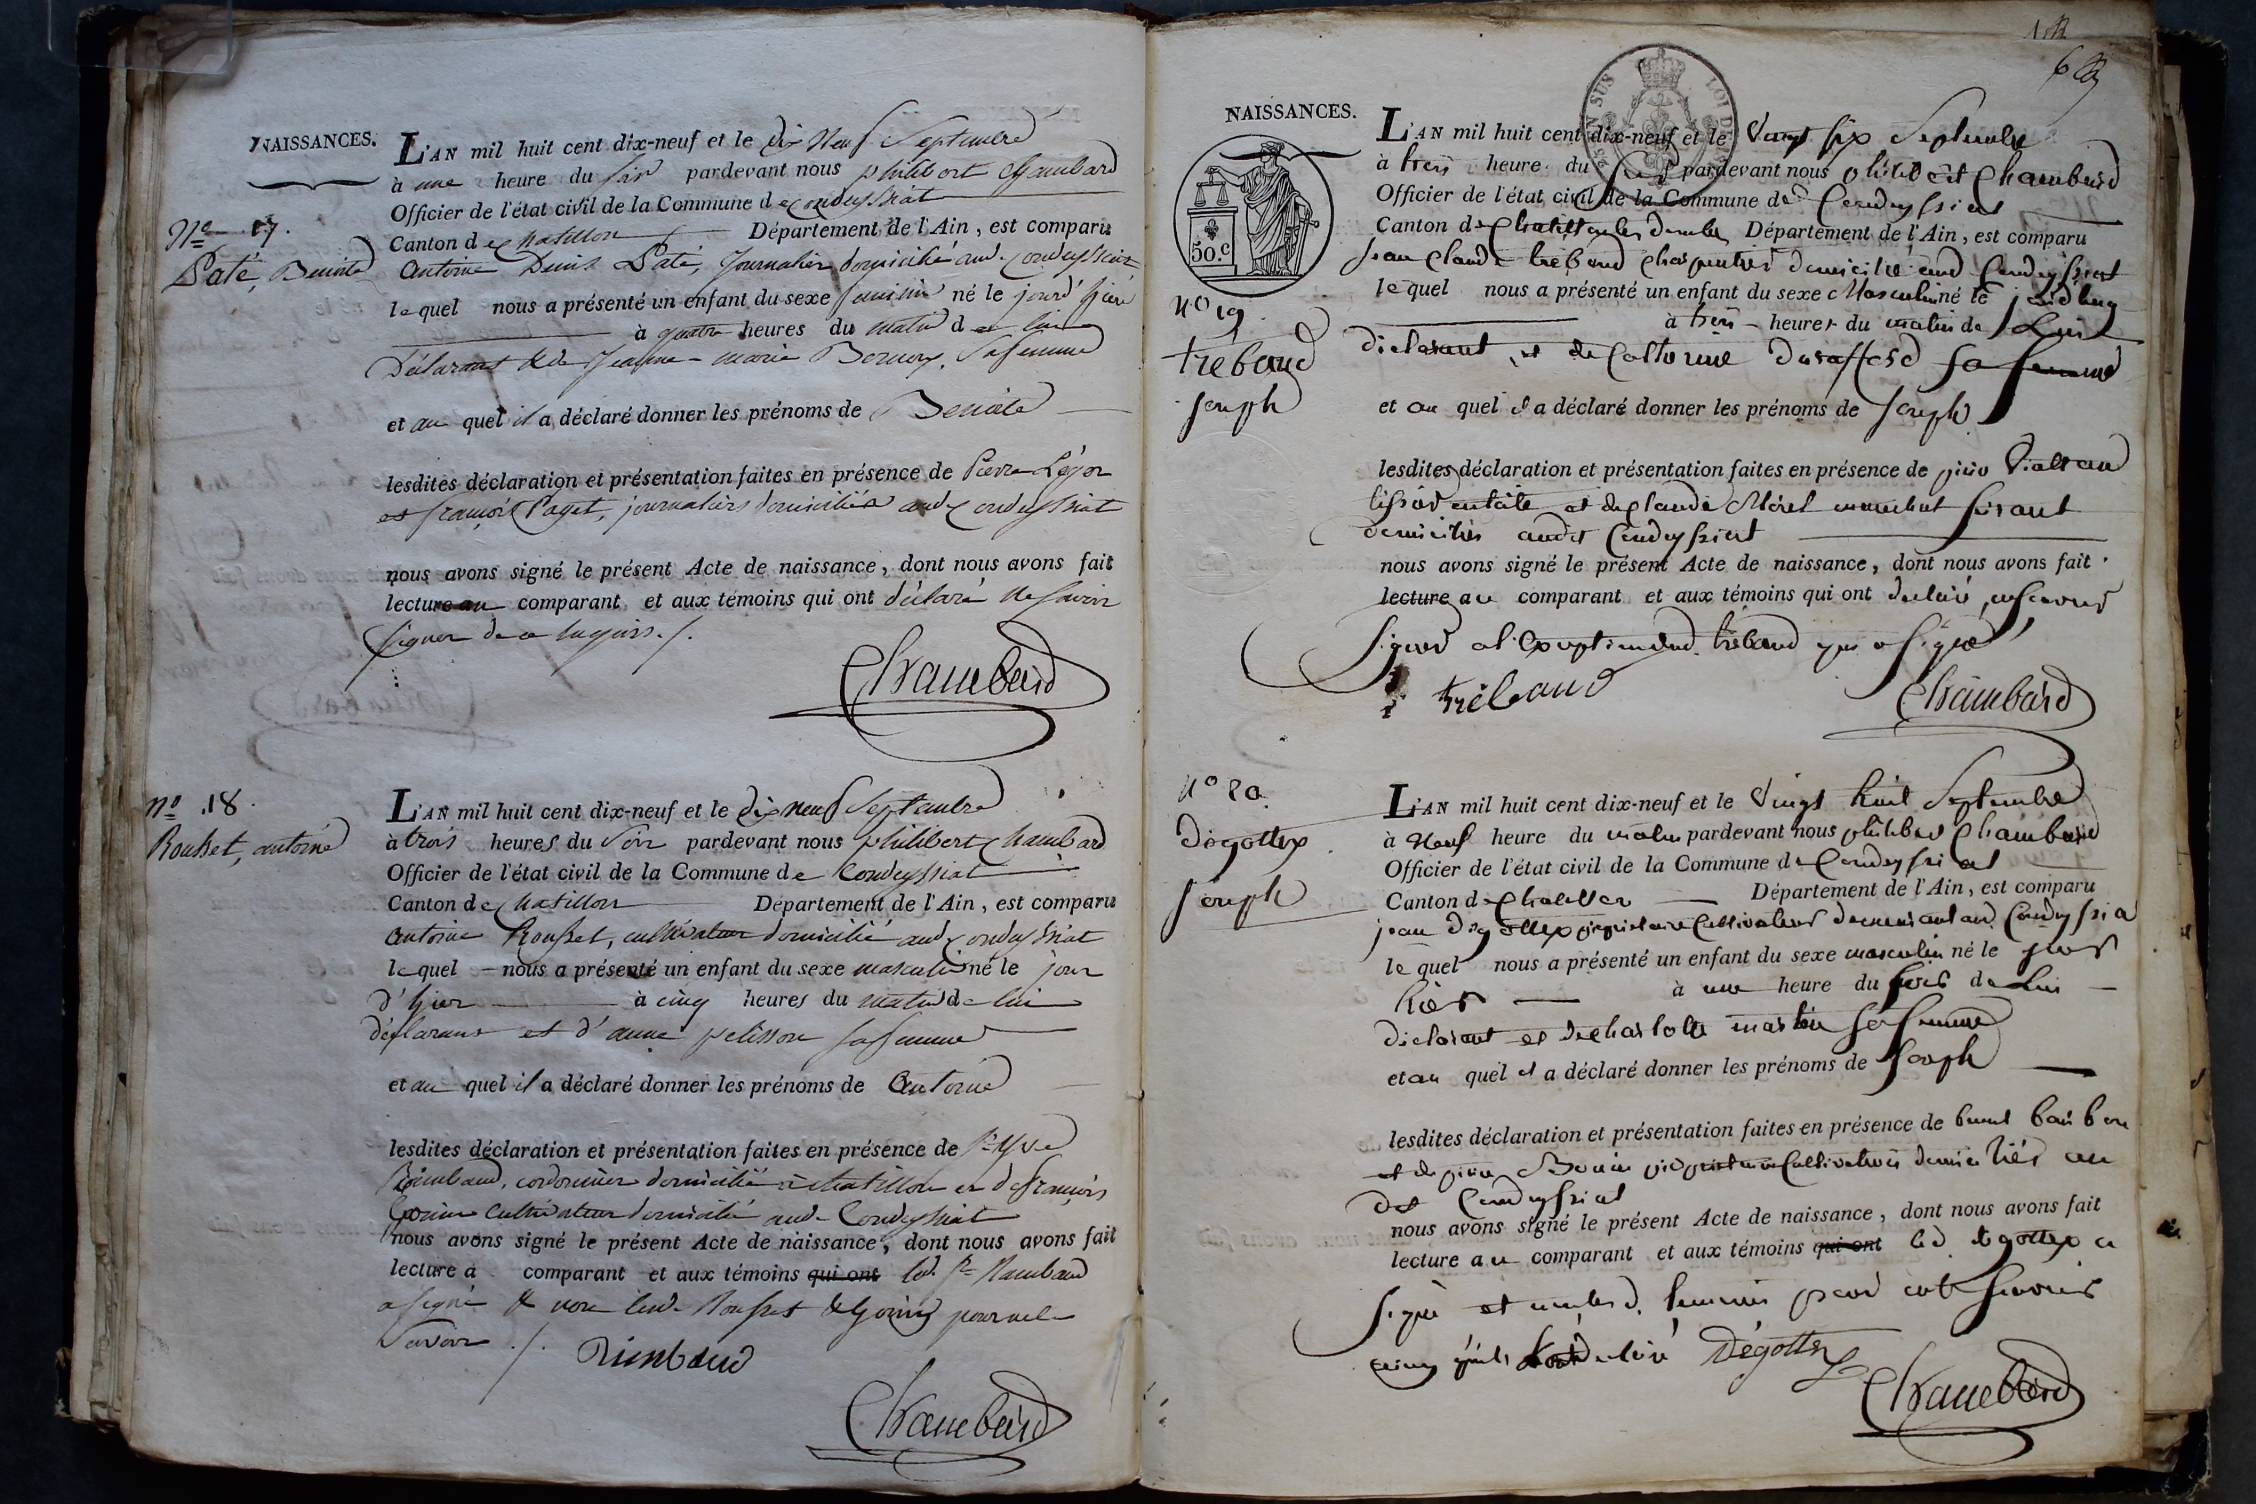 NAISSANCES.
L'AN mil huit cent dix-neuf et le dix neuf Septembre
à une heure du soir pardevant nous philibert Chambard
Officier de l'état civil de la Commune de Condeyssiat
Nº 17.
Canton de chatillon Département de l'Ain, est comparu
Paté, Benoite
antoine Denis Paté, Journalier domicilié aud. Condeyssiat
lequel nous a présenté un enfant du sexe feminin né le jourd'hier
à quatre heures du matin de lui
Déclarant & de Jeanne-marie sa femme
et au quel il a déclaré donner les prénoms de Benoite
lesdites déclaration et présentation faites en présence de Pierre Léger
et françois Paget, journaliers domiciliés aud. Condeyssiat
nous avons signé le présent Acte de naissance, dont nous avons fait
lecture au comparant et aux témoins qui ont déclaré ne savoir
signer de ce enquis ./.
Chambard
nº 18.
L'AN mil huit cent dix-neuf et le dix neuf Septembre
Rousset, antoine
à trois heures du Soir pardevant nous philibert Chambard
Officier de l'état civil de la Commune de Condeyssiat
Canton de chatillon Département de l'Ain, est comparu
antoine Rousset, cultivateur domicilié aud. Condeyssiat
lequel nous a présenté un enfant du sexe masculin né le jour
d'hier à cinq heures du matin de lui
déclarant et d'anne pelisson sa femme
et au quel il a déclaré donner les prénoms de antoine
lesdites déclaration et présentation faites en présence de
Rimbaud, cordonnier domicilié à chatillon et de françois
Gonin cultivateur domicilié aud. Condeyssiat
nous avons signé le présent Acte de naissance, dont nous avons fait
lecture a comparant et aux témoins qui ont led.
a signé & non led. Rousset & Gonin pour ne le
Savoir ./.
Rimbaud
Chambard
NAISSANCES.
50.c
L'AN mil huit cent dix-neuf et le Vingt six Septembre
à heure du pardevant nous philibert Chambard
Officier de l'état civil de la Commune de Condeyssiat
Canton de Département de l'Ain, est comparu
jean Claude trebaud charpentier domicilié aud Condeyssiat
lequel nous a présenté un enfant du sexe Masculin né le
nº 19.
à heures du matin de Lui
trebaud
joseph
declarant et de Catherine Durafford sa femme
et au quel il a déclaré donner les prénoms de joseph
lesdites déclaration et présentation faites en présence de
et de claude
domiciliés audit Condeyssiat
nous avons signé le présent Acte de naissance, dont nous avons fait
lecture au comparant et aux témoins qui ont declaré
signer a l'exception dud. trebaud qui a signé
trébaud
Chambard
nº 20.
L'AN mil huit cent dix-neuf et le Vingt huit Septembre
degottex
à Neuf heure du matin pardevant nous philibert Chambard
Officier de l'état civil de la Commune de Condeyssiat
joseph
Canton de Département de l'Ain, est comparu
jean degottex propriétaire Cultivateur demeurant aud Condeyssiat
lequel nous a présenté un enfant du sexe masculin né le jour
hier à une heure du soir de Lui
declarant et de charlotte martin sa femme
et au quel il a déclaré donner les prénoms de joseph
lesdites déclaration et présentation faites en présence de
et de pierre propriétaire Cultivateurs domiciliés au
dit Condeyssiat
nous avons signé le présent Acte de naissance, dont nous avons fait
lecture au comparant et aux témoins qui ont led. degottex a
signé et
Dégottex
Chambard